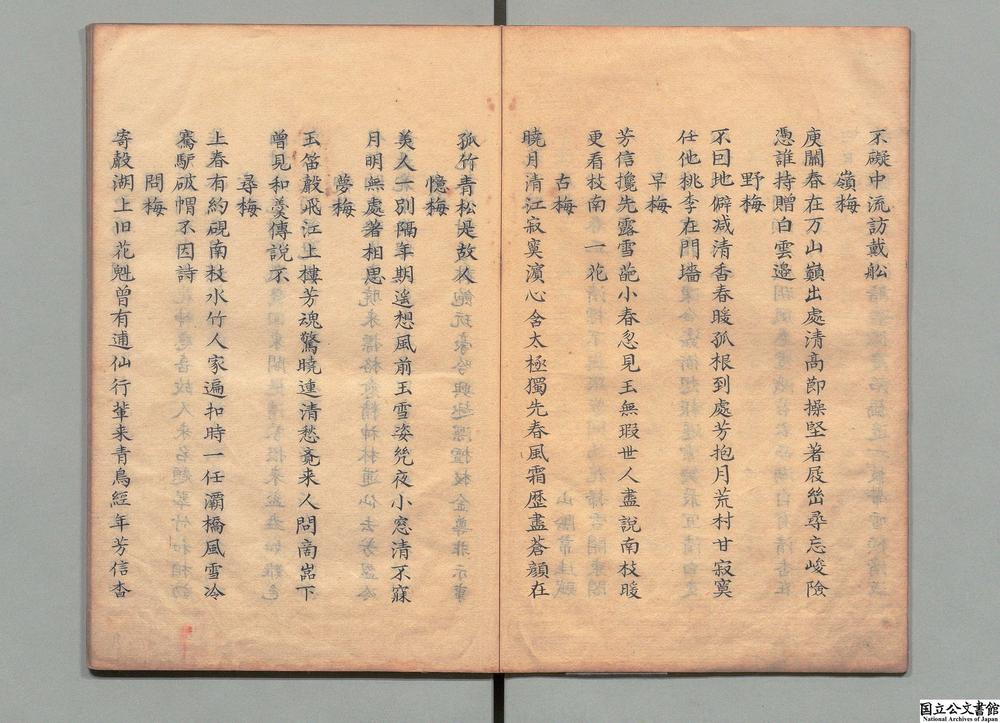 不礙中流訪戴舩
嶺梅
庾關春在万山巔出處清高節操堅著屐岧尋忘峻險
憑誰持贈白雲邊
野梅
不囙地僻减清香春暖孤根到處芳抱月荒村甘寂寞
任他桃李在門墻
早梅
芳信攙先露雪葩小春忽見玉無瑕世人盡說南枝暖
更看枝南春一花
古梅
曉月清江寂寞濱心含太極獨先春風霜歷盡蒼顔在
孤竹青松是故人
憶梅
美人一別隔年期遙想風前玉雪姿凭夜小窓清不寐
月明無處著相思
夢梅
玉笛聲飛江上樓芳魂驚曉連清愁竟来人問啇嵓下
曾見和羹傳說不
尋梅
上春有約硯南枝水竹人家遍扣時一任灞橋風雪冷
騫馿破帽不因詩
問梅
寄聲湖上旧花魁曾有逋仙行輩来青鳥經年芳信杳
国立公文書館
National Archives of Japan